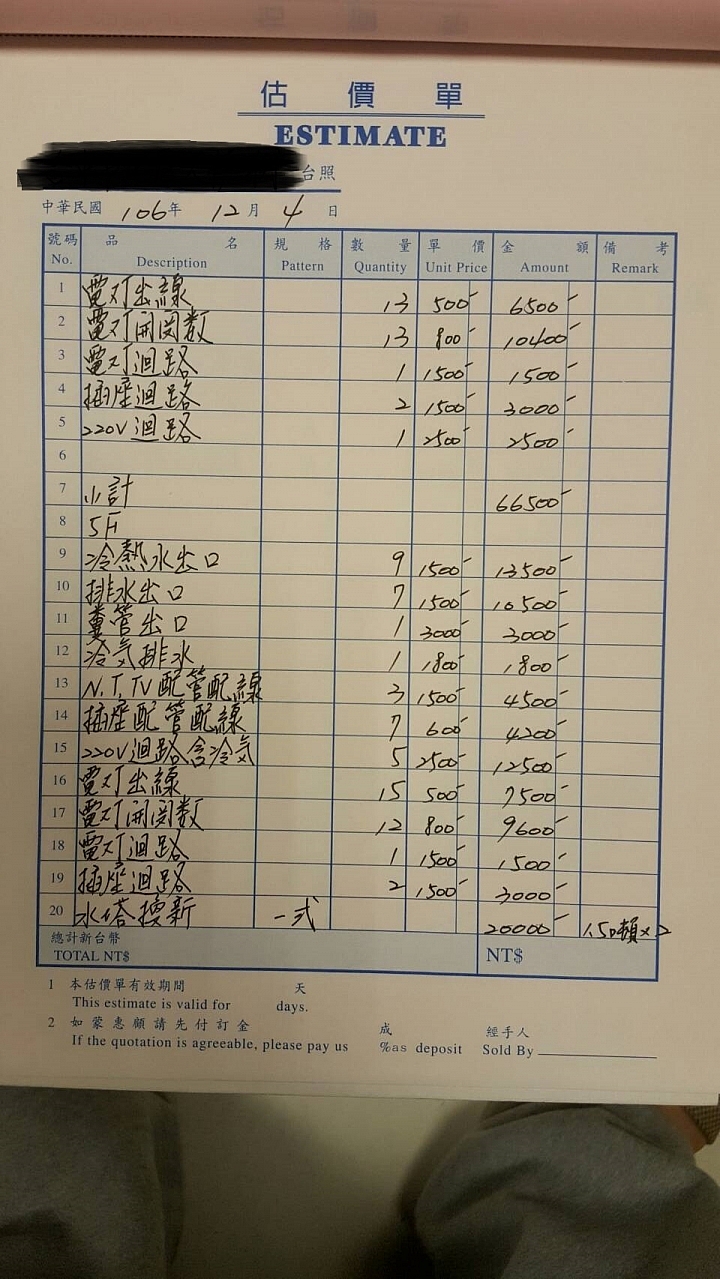 估價單
ESTIMATE
台照
中華民國 106年 12月 4日
號碼 品名 規格 數量 單價 金額 備考
No. Description Pattern Quantity Unit Price Amount Remark
1 電灯出線 13 500- 6500-
2 電灯開関數 13 800- 10400-
3 電灯迴路 1 1500- 1500-
4 插座迴路 2 1500- 3000-
5 220V迴路 1 2500- 2500-
6
7 小計 66500-
8 5F
9 冷熱水出口 9 1500- 13500-
10 排水出口 7 1500- 10500-
11 糞管出口 1 3000- 3000-
12 冷気排水 1 1800- 1800-
13 N.T,TV配管配線 3 1500- 4500-
14 插座配管配線 7 600- 4200-
15 220V迴路含冷気 5 2500- 12500-
16 電灯出線 15 500- 7500-
17 電灯開関數 12 800- 9600-
18 電灯迴路 1 1500- 1500-
19 插座迴路 2 1500- 3000-
20 水塔換新 一式 20000- 1.5噸×2
總計新台幣
TOTAL NT$ NT$
1 本估價單有效期間 天
This estimate is valid for days.
2 如蒙惠顧請先付訂金 成 經手人
If the quotation is agreeable, please pay us %as deposit Sold By